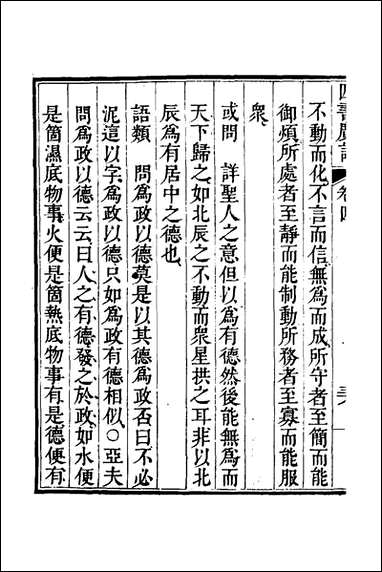 不動而化不言而信無爲而成所守者至簡而能
御煩所處者至靜而能制動所務者至寡而能服
衆
或問　詳聖人之意但以爲有德然後能無爲而
天下歸之如北辰之不動而衆星拱之耳非以北
辰爲有居中之德也
語類　問爲政以德莫是以其德爲政否曰不必
泥這以字爲政以德只如爲政有德相似○亞夫
問爲政以德云云曰人之有德發之於政如水便
是箇濕底物事火便是箇熱底物事有是德便有